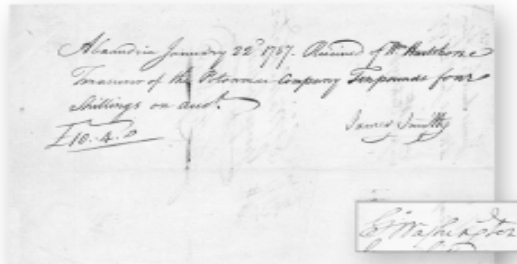 Alexandria January 22d 1787. Received of Wm Hartshorne
Treasurer of the Potomac Company Ten pounds four
Shillings on acct.
£10.4.0
James Smith
G Washington